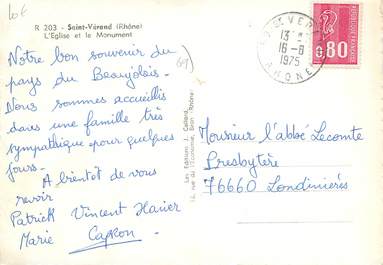 10F
R 203 - Saint-Vérand (Rhône)
L'Eglise et le Monument
69
Notre bon souvenir du
pays du Beaujolais.
Nous sommes accueillis
dans une famille très
sympathique pour quelques
jours.
A bientôt de vous
revoir
Patrick Vincent Xavier
Marie Capron
ST VERAND
13
16-8
1975
RHONE
0,80
Les Editions J. Cellard
Bron (Rhône)
Monsieur l'abbé Lecomte
Presbytère
76660 Londinières